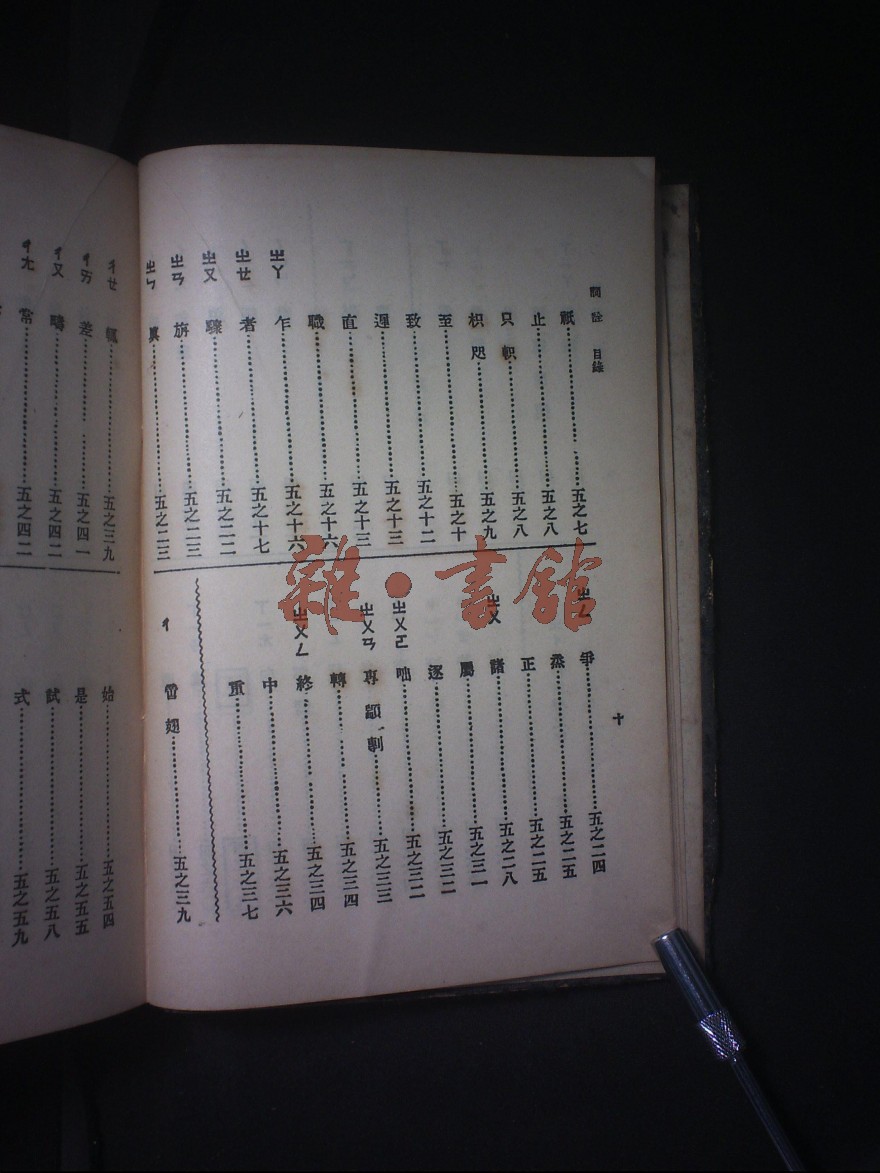 詞詮 目錄
十
祇⋯⋯五之七
止⋯⋯五之八
只 軹⋯⋯五之八
枳 咫⋯⋯五之九
至⋯⋯五之十
致⋯⋯五之十二
遲⋯⋯五之十三
直⋯⋯五之十三
職⋯⋯五之十六
ㄓㄚ 乍⋯⋯五之十六
ㄓㄜ 者⋯⋯五之十七
ㄓㄡ 驟⋯⋯五之二二
ㄓㄢ 旃⋯⋯五之二三
ㄓㄣ 眞⋯⋯五之二三
ㄓㄥ 爭⋯⋯五之二四
烝⋯⋯五之二五
正⋯⋯五之二五
ㄓㄨ 諸⋯⋯五之二八
屬⋯⋯五之三一
逐⋯⋯五之三二
ㄓㄨㄛ 咄⋯⋯五之三二
ㄓㄨㄢ 專 顓 剸⋯⋯五之三三
轉⋯⋯五之三四
ㄓㄨㄥ 終⋯⋯五之三四
中⋯⋯五之三六
重⋯⋯五之三七
ㄔ 啻 翅⋯⋯五之三九
ㄔㄜ 輒⋯⋯五之三九
ㄔㄞ 差⋯⋯五之四一
ㄔㄡ 疇⋯⋯五之四二
ㄔㄤ 常⋯⋯五之四二
始⋯⋯五之五四
是⋯⋯五之五五
試⋯⋯五之五八
式⋯⋯五之五九
雜·書館